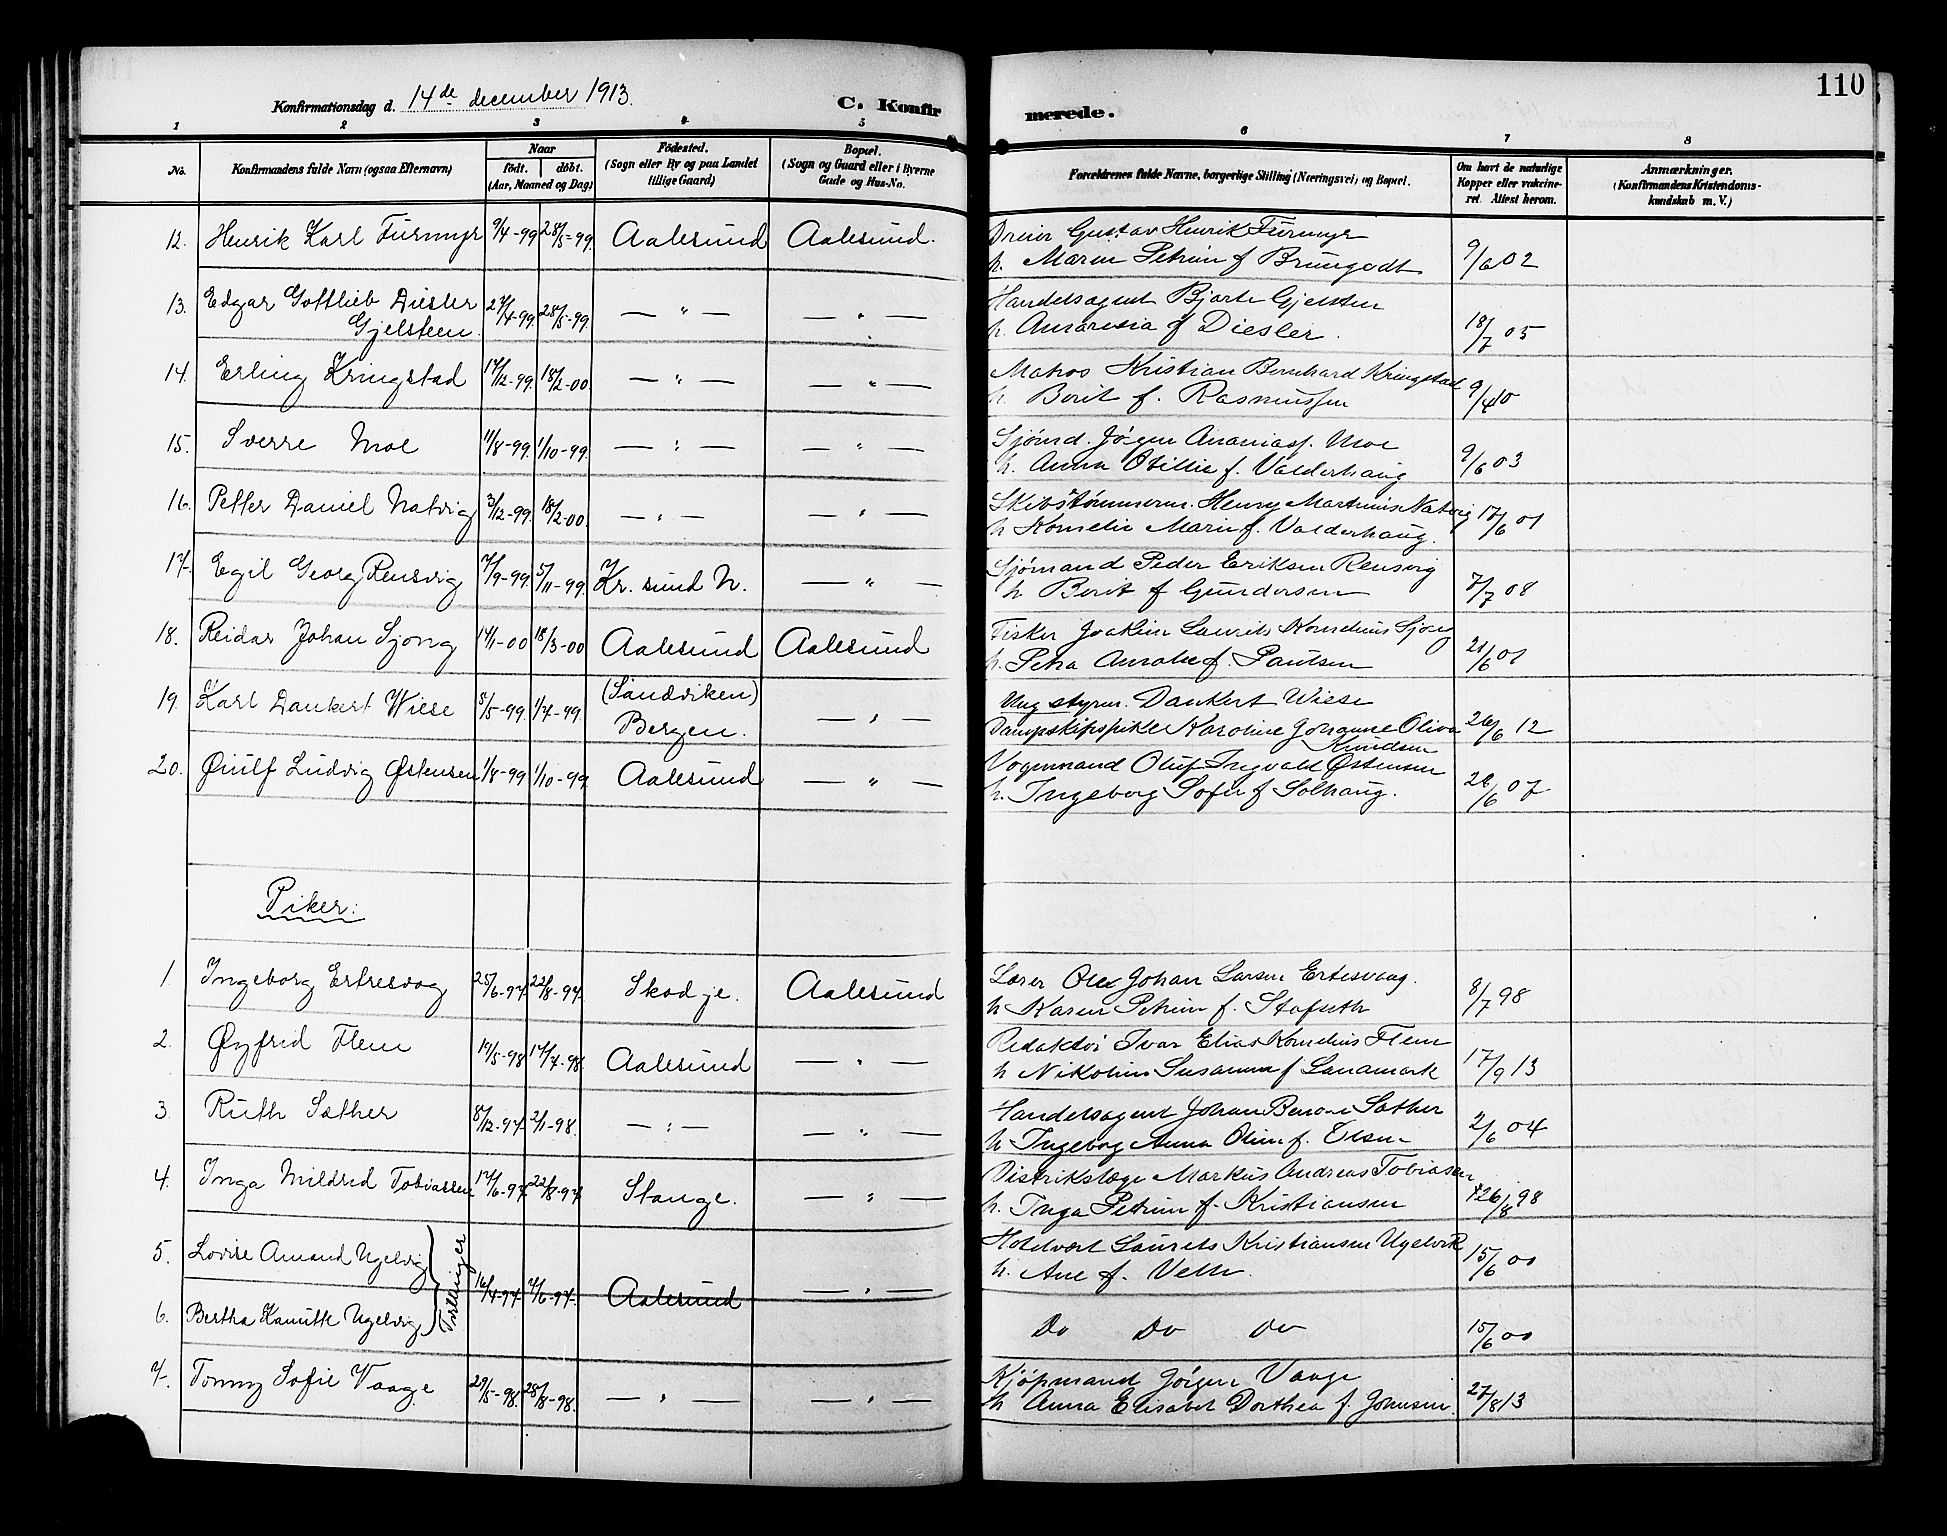 110
Konfirmationsdag d. 14de december 1913.
C. Konfirmerede.
1 2 3 4 5 6 7 8
No.
Konfirmandens fulde Navn (ogsaa Efternavn)
Naar
født. døbt.
(Aar, Maaned og Dag)
Fødested.
(Sogn eller By og paa Landet
tillige Gaard)
Bopæl.
(Sogn og Gaard eller i Byerne
Gade og Hus-No.
Forældrenes fulde Navne, borgerlige Stilling (Næringsvei) og Bopæl.
Om havt de naturlige
Kopper eller vakcine-
ret. Attest herom.
Anmærkninger.
(Konfirmandens Kristendoms-
kundskab m. V.)
12. Henrik Karl Furmyr 9/4-99 28/5-99. Aalesund Aalesund. Dreier Gustav Henrik Furmyr
h. Maren Petrine f Brungodt 9/6 02
13. Edgar Gottlieb Diesler 27/4-99. 28/5-99. — " — — " — Handelsagent Bjarte Gjelsten
Gjelsteen. h. Amaresia f Diesler. 18/7 05
14. Erling Kringstad 17/12-99. 18/2-00. — " — — " — Matros Kristian Bernhard Kringstad
h. Berit f. Rasmussen 9/4 10
15. Sverre Moe 11/8-99. 1/10-99. — " — — " — Sjømd. Jørgen Ananiass. Moe
h. Anna Otillie f. Valderhaug 9/6 03
16. Petter Daniel Natvig 3/12-99. 18/2-00. — " — — " — Skibstømmerm. Henry Martinus Natvig
h Kornelie Marie f. Valderhaug. 17/6 01
17. Egil Georg Rensvig 7/9-99. 5/11-99. Kr. sund N. — " — Sjømand Peder Eriksen Rensvig
h Berit f Gundersen 7/7 08
18. Reidar Johan Sjong 14/1-00 18/3-00 Aalesund Aalesund Fisker Joakim Laurits Kornelius Sjong
h. Petra Amalie f. Paulsen 21/6 01
19. Karl Dankert Wiese 3/5-99. 1/7-99. (Sandviken) — " — Ung styrm. Dankert Wiese
Bergen. Dampskipspike Karoline Johanne Oliva 26/6 12
Knudsen
20. Øiulf Ludvig Østensen 1/8-99 1/10-99. Aalesund — " — Vognmand Oluf Ingvald Østensen
h. Ingeborg Sofie f Solhaug. 26/6 07
Piker:
1. Ingeborg Ertresvag 25/6-97. 22/8-97. Skodje. Aalesund Lærer Ole Johan Larsen Ertesvaag.
h Karen Petrine f. Stafseth 8/7 98
2. Øyfrid Flem 19/5-98 17/7-98. Aalesund — " — Redaktør Ivar Elias Kornelius Flem
h Nikoline Susanna f Landmark 17/9 13
3. Ruth Sæther 8/12-97. 2/1-98. — " — — " — Handelsagent Johan Benone Sæther
h Ingeborg Anna Oline f. Olsen 2/6 04
4. Inga Mildred Tobiassen 17/6-97. 22/8-97 Stange. — " — Distrikslæge Markus Andreas Tobiasen
h. Inga Petrine f. Kristiansen 26/8 98
5. Lovise Amand Ugelvig 16/4-97. 7/6-97. Aalesund — " — Hotelvært Laurets Kristiansen Ugelvik
h. Ane f. Veth 15/6 00
Tvillinger
6. Bertha Kamitte Ugelvig Do Do Do 15/6 00
7. Tommy Sofie Vaage 29/5-98. 28/8-98. — " — — " — Kjøpmand Jørgen Vaage
h Anna Elisabet Dorthea f. Johnsen. 27/8 13